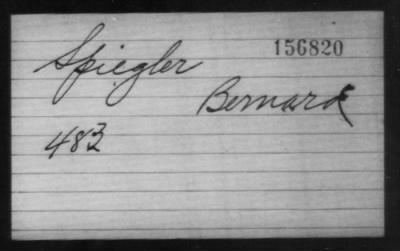 Spiegler 156820
Bernard
483